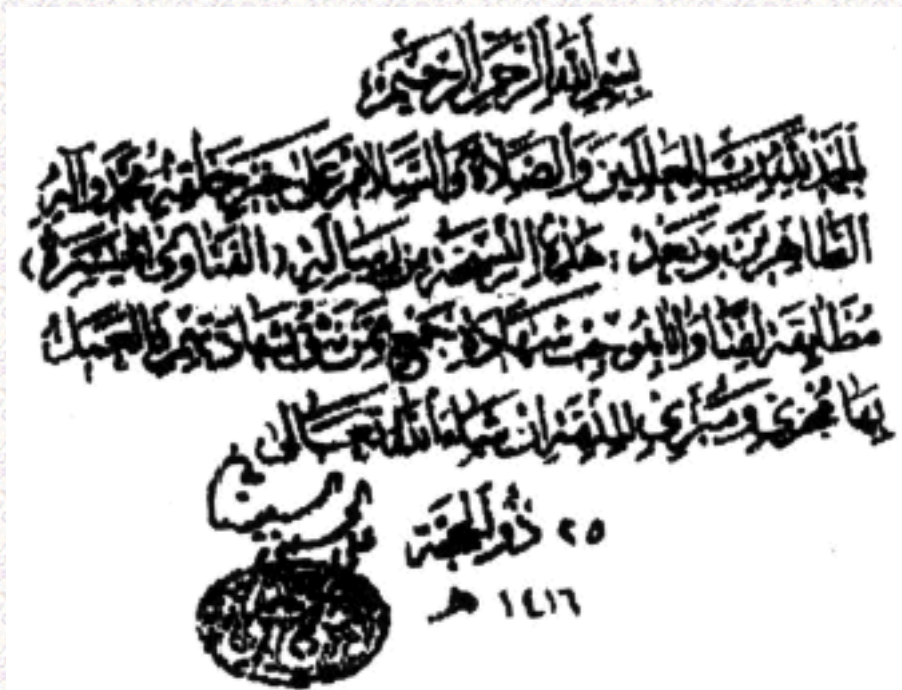 بِسْمِ اللهِ الرَّحْمٰنِ الرَّحِيْمِ
الحمد لله رب العالمين والصلاة والسلام على خير خلقه محمد وآله
الطاهرين وبعد : هذه النسخة من رسالة (الفتاوى الميسرة)
مطابقة لفتاوانا بموجب شهادة جمع ممن نثق بشهادتهم فالعمل
بها مجزي ومبرئ للذمة إن شاء الله تعالى
٢٥ ذو الحجة
١٤١٦ هـ